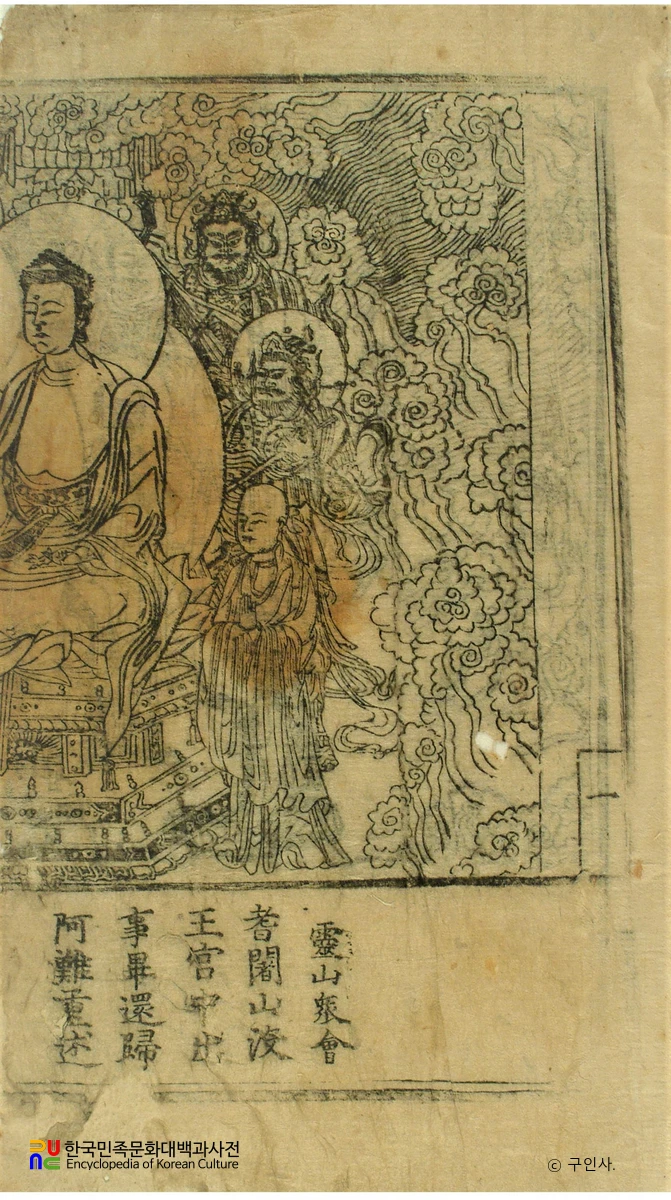 靈山衆會
耆闍山没
王宮中出
事畢還歸
阿難重述
한국민족문화대백과사전
Encyclopedia of Korean Culture
ⓒ 구인사.